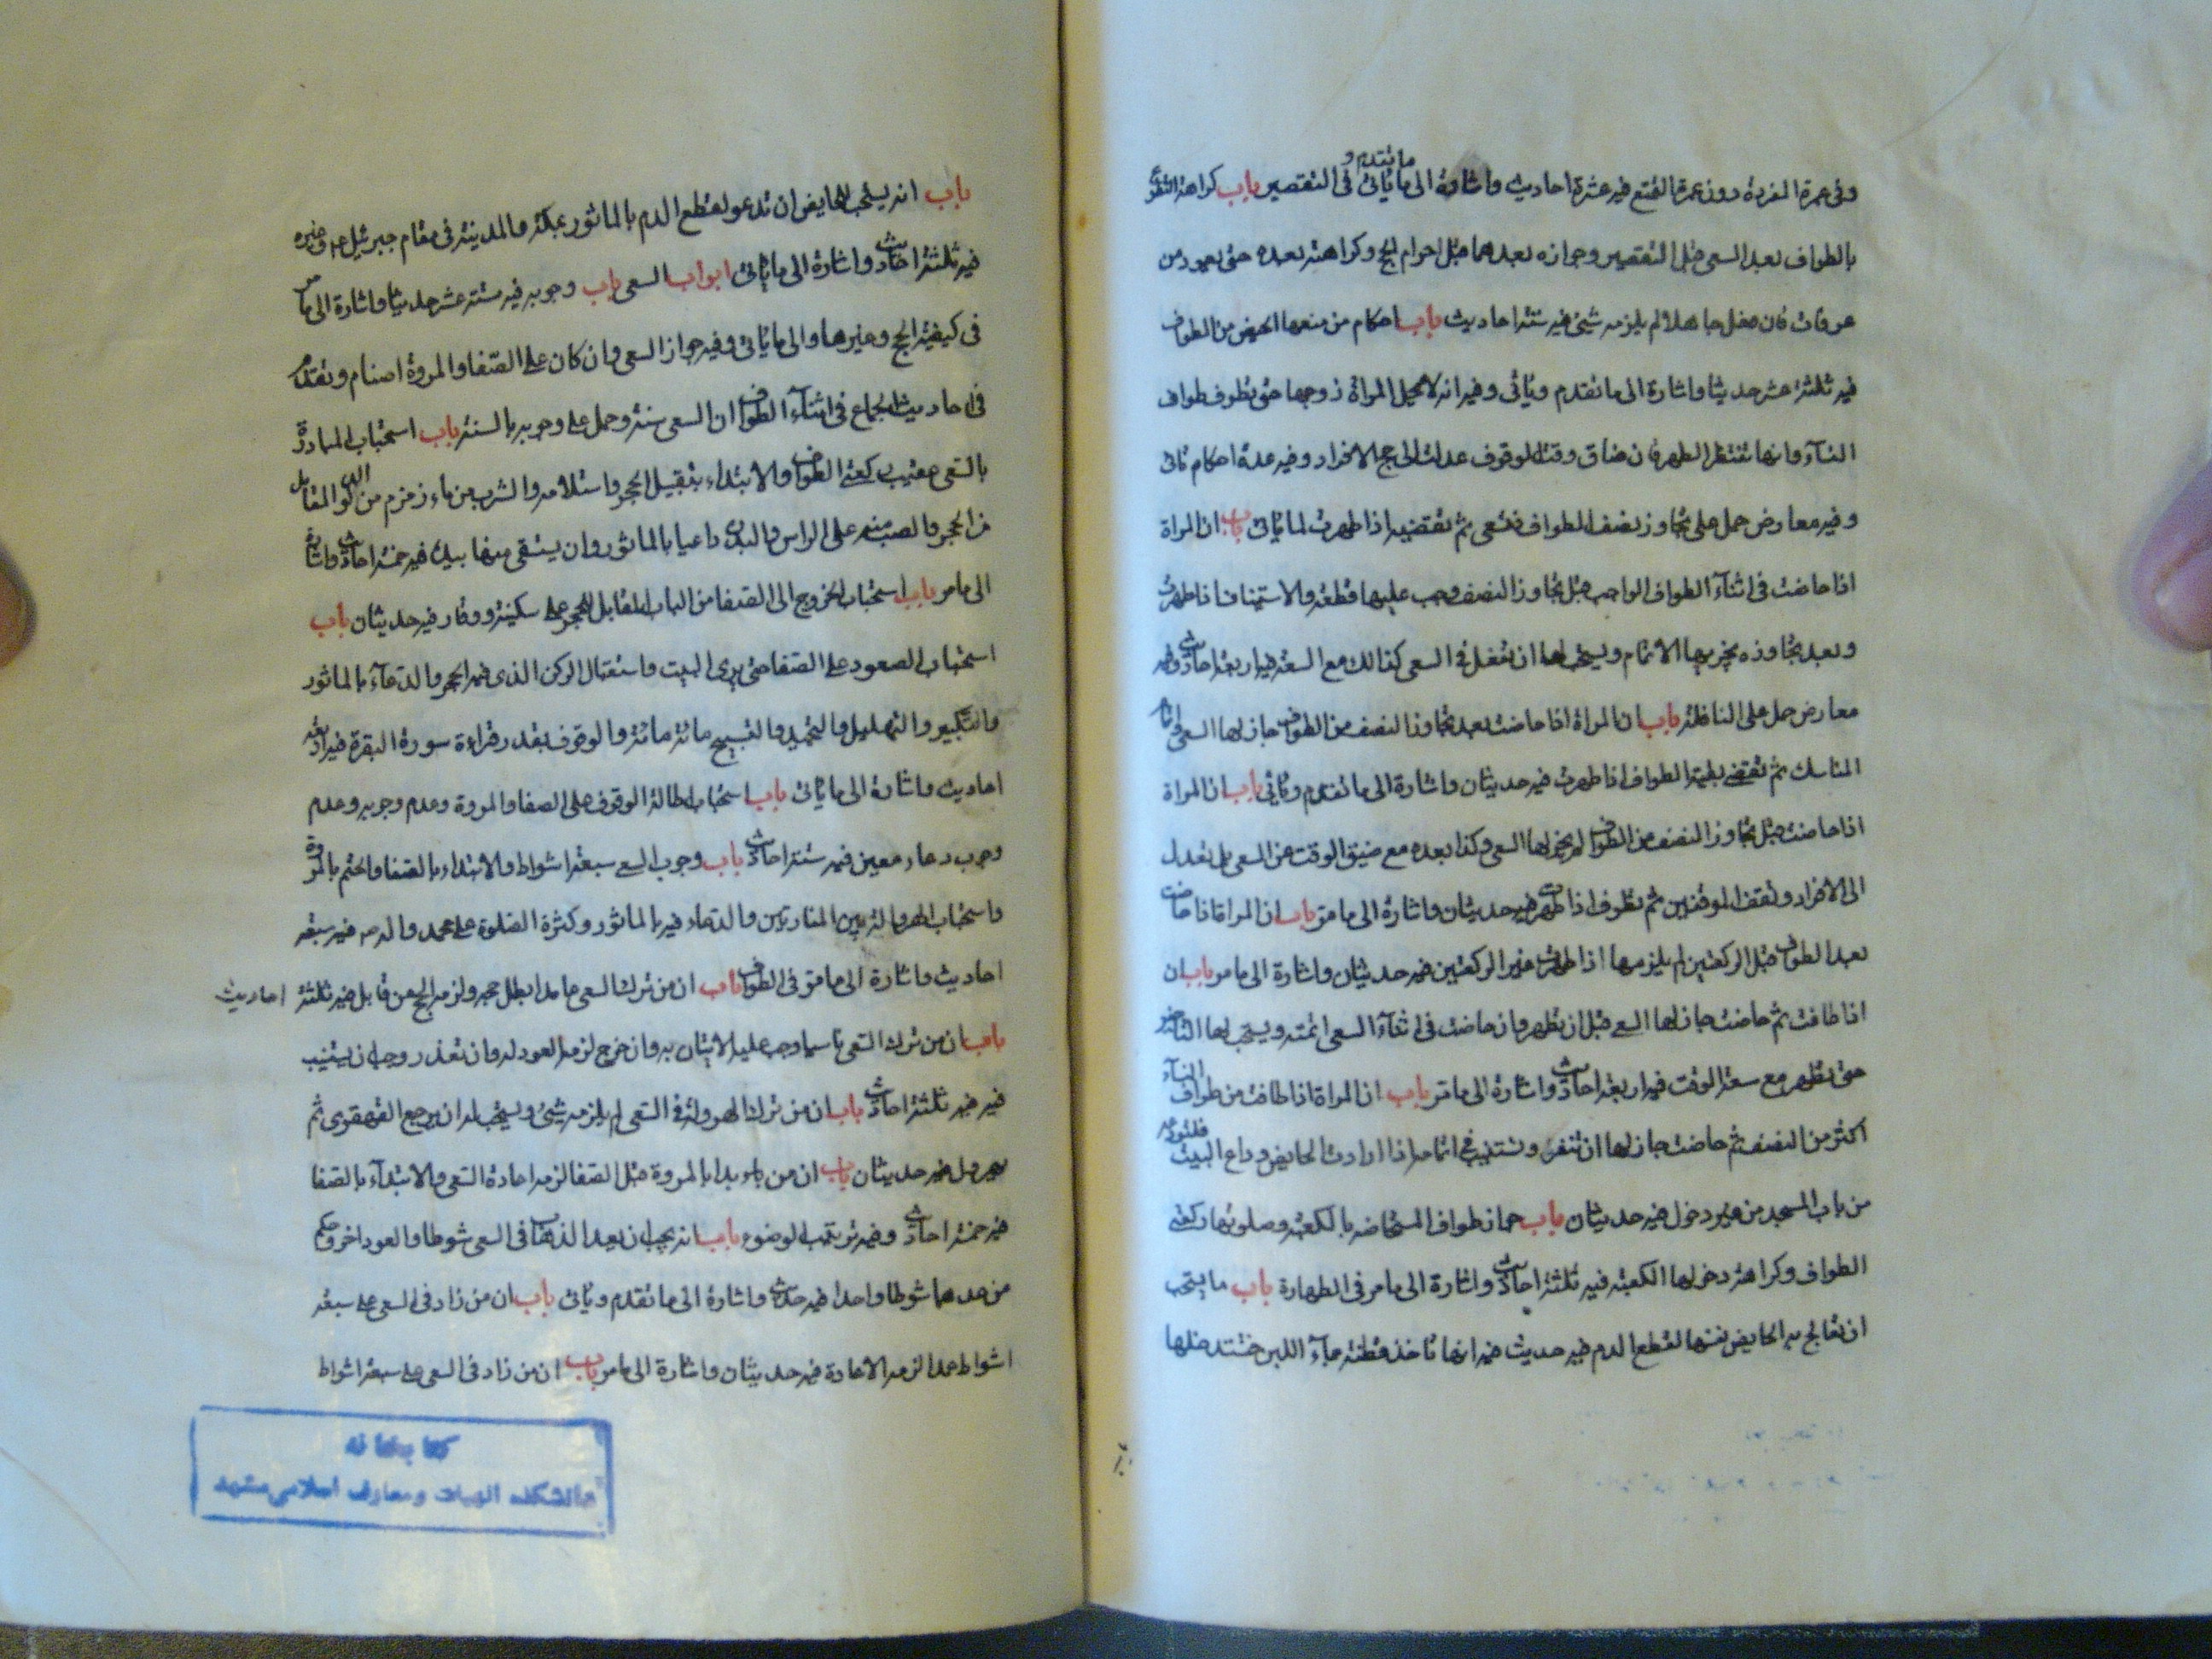 وفى عمرة المفردة دون عمرة التمتع فيه عشرة احاديث واشارة الى ما تقدم و ما ياتى فى التقصير باب كراهة التطوع
بالطواف بعد السعى قبل التقصير وجوازه بعدهما قبل احرام الحج وكراهته بعده حتى يعود من
عرفات فان فعل جاهلا لم يلزمه شئ فيه ستة احاديث باب احكام من منعها الحيض من الطواف
فيه ثلثة عشر حديثا واشارة الى ما تقدم وياتى وفيه انه لا تحيل المراة زوجها حتى تطوف طواف
النسآء وانها تنتظر الطهر فان ضاق وقت الوقوف عدلت الى حج الافراد وفيه عدة احكام تاتى
وفيه معارض حمل على تجاوز نصف الطواف فتسعى ثم تقضيه اذا طهرت لما ياتى باب ان المراة
اذا حاضت فى اثنآء الطواف الواجب قبل تجاوز النصف وجب عليها قطعه والاستيناف اذا طهرت
وبعد تجاوزه يجزيها الاتمام ويستحب لها ان تفعل فى السعى كذالك مع السعة فيه اربعة احاديث وفيه
معارض حمل على النافلة باب ان المراة اذا حاضت بعد تجاوز النصف من الطواف جاز لها السعى واتمام
المناسك ثم تقضى بقية الطواف اذا طهرت فيه حديثان واشارة الى ما تقدم وياتى باب ان المراة
اذا حاضت قبل تجاوز النصف من الطواف لم يجز لها السعى وكذا بعده مع ضيق الوقت عن السعى بل تعدل
الى الافراد وتقف الموقفين ثم تطوف اذا طهرت فيه حديثان واشارة الى ما مر باب ان المراة اذا حاضت
بعد الطواف قبل الركعتين لم يلزمها اذا طهرت غير الركعتين فيه حديثان واشارة الى ما مر باب ان
اذا طافت ثم حاضت جاز لها السعى قبل ان تطهر وان حاضت فى اثنآء السعى اتمته ويستحب لها التاخير
حتى تطهر مع سعة الوقت فيه اربعة احاديث واشارة الى ما مر باب ان المراة اذا طافت من طواف النسآء
اكثر من النصف ثم حاضت جاز لها ان تنفر وتستنيب فى اتمامه اذا ارادت الحايض وداع البيت فلتودعه
من باب المسجد من غير دخول فيه حديثان باب جواز طواف المستحاضه بالكعبة وصلوتها ركعتى
الطواف وكراهة دخولها الكعبة فيه ثلثة احاديث واشارة الى ما مر فى الطهارة باب ما يستحب
ان تعالج به الحايض نفسها لقطع الدم فيه حديث فيه انها تاخذ قطنة بمآء اللبن فتستدخلها
باب انه يستحب للحايض ان تدعو لقطع الدم بالماثور بمكة والمدينة فى مقام جبرئيل ع وغيره
فيه ثلثة احاديث واشارة الى ما ياتى ابواب السعى باب وجوبه فيه ستة عشر حديثا واشارة الى ما مر
فى كيفية الحج وغيرها والى ما ياتى وفيه جواز السعى وان كان على الصفا والمروة اصنام وتقدم
فى احاديث الجماع فى اثنآء الطواف ان السعى سنة وحمل على وجوبه بالسنة باب استحباب المبادرة
بالسعى عقيب ركعتى الطواف والابتداء بتقبيل الحجر واستلامه والشرب من ماء زمزم من الدلو المقابل
من الحجر والصب منه على الراس والبدن داعيا بالماثور وان يستقى منها بيده فيه خمسة احاديث واشارة
الى ما مر باب استحباب الخروج الى الصفا من الباب المقابل للحجر على سكينة ووقار فيه حديثان باب
استحباب الصعود على الصفا حتى يرى البيت واستقبال الركن الذى فيه الحجر والدعآء بالماثور
والتكبير والتهليل والتحميد والتسبيح مائة مائة والوقوف بقدر قراءة سورة البقرة فيه اربعة
احاديث واشارة الى ما ياتى باب استحباب اطالة الوقوف على الصفا والمروة وعدم وجوبه وعدم
وجوب دعاء معين فيه ستة احاديث باب وجوب السعى سبعة اشواط والابتداء بالصفا والختم بالمروة
واستحباب الهرولة بين المنارتين والدعاء فيه بالماثور وكثرة الصلوة على محمد واله فيه سبعة
احاديث واشارة الى ما مر فى الطواف باب ان من ترك السعى عامدا بطل حجه ولزمه الحج من قابل فيه ثلثة احاديث
باب ان من ترك السعى ناسيا وجب عليه الاتيان به وان خرج لزمه العود له وان تعذر وجب ان يستنيب
فيه ثلثة احاديث باب ان من ترك الهرولة فى السعى لم يلزمه شئ ويستحب له ان يرجع القهقرى ثم
يهرول فيه حديثان باب ان من بدا بالمروة قبل الصفا لزمه اعادة السعى والابتدآء بالصفا
فيه خمسة احاديث وفيه ترتيب الوضوء باب انه يجب ان يعد الذهاب فى السعى شوطا والعود اخر وحكم
من عدهما شوطا واحدا فيه حديث واشارة الى ما تقدم وياتى باب ان من زاد فى السعى على سبعة
اشواط عمدا لزمه الاعادة فيه حديثان واشارة الى ما مر باب ان من زاد فى السعى على سبعة اشواط
كتابخانه
دانشكده الهيات و معارف اسلامى مشهد